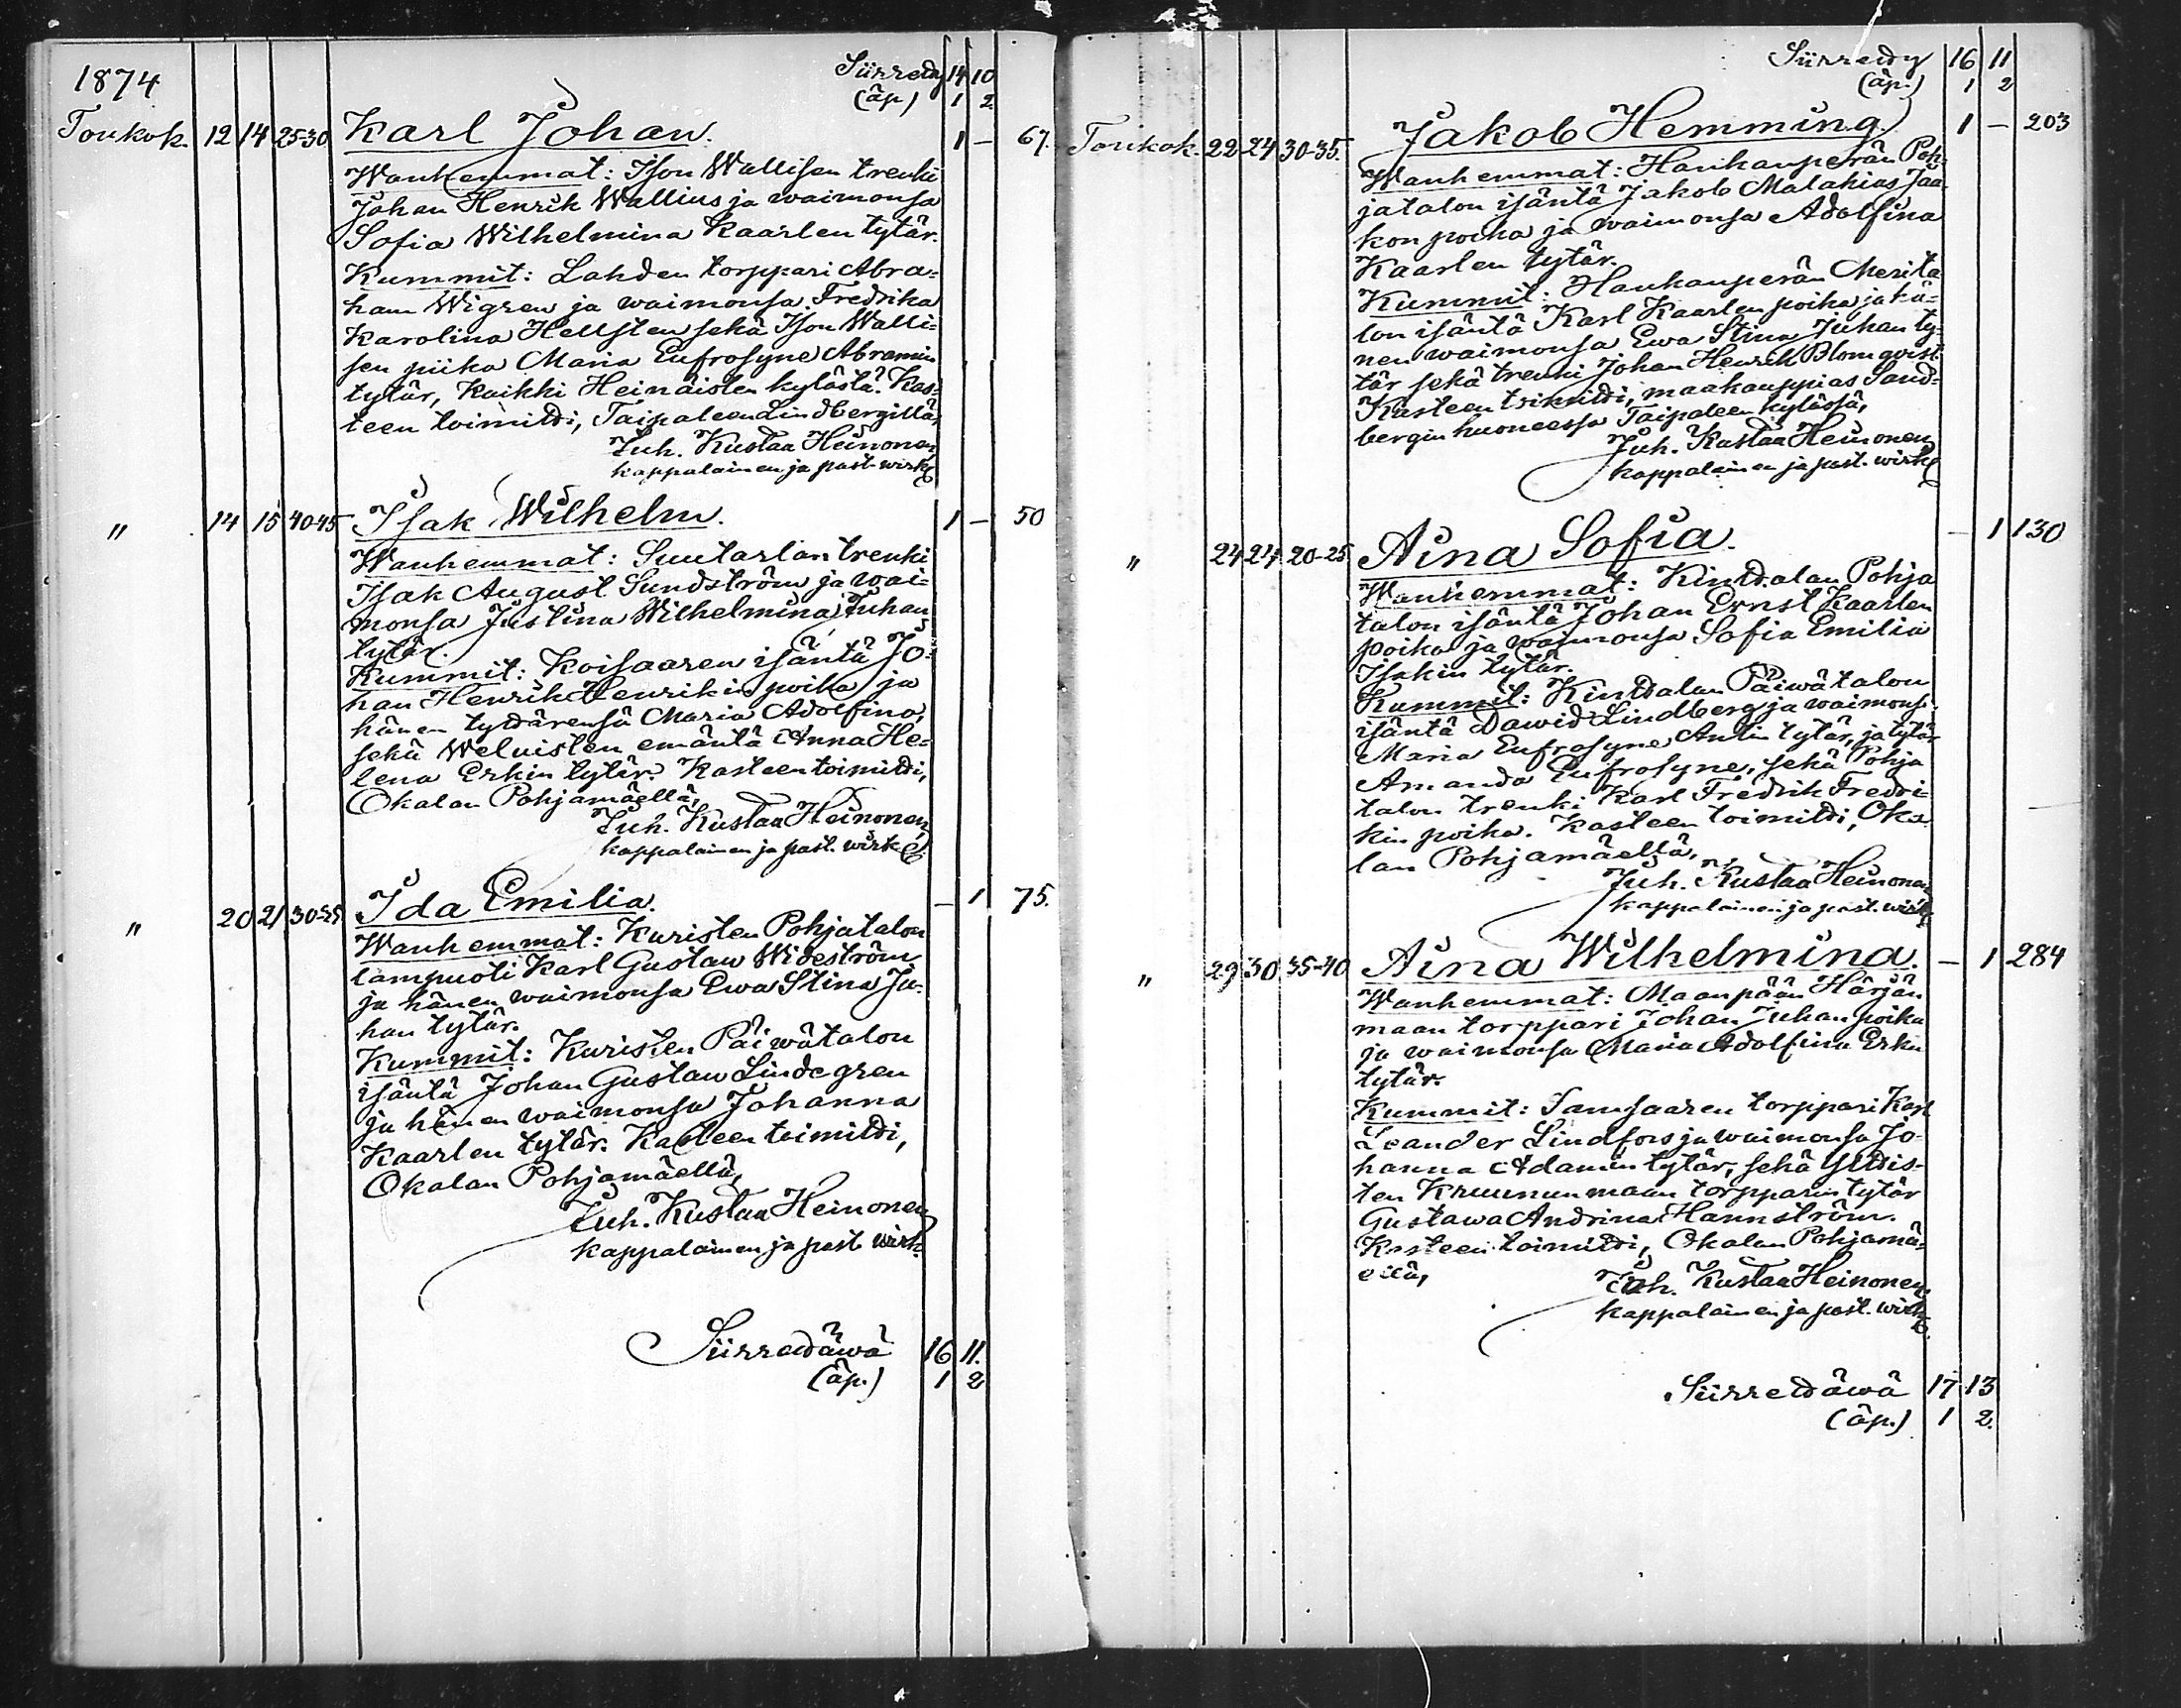 1874
Siirredty 14 10
(äp.) 1 2
Toukok. 12 14 25-30 Karl Johan. 1 – 67.
Wanhemmat: Ison Wallisen trenki
Johan Henrik Wallius ja waimonsa
Sofia Wilhelmina Kaarlen tytär.
Kummit: Lahden torppari Abra=
ham Wigren ja waimonsa Fredrika
Karolina Hellsten sekä Ison Walli=
sen piika Maria Eufrosyne Abramin
tytär, kaikki Heinäisten kylästä. Kas=
teen toimitti, Taipaleen Lindbergillä,
Juh. Kustaa Heinonen
kappalainen ja past. wirk.
" 14 15 40-45 Isak Wilhelm. 1 – 50
Wanhemmat: Suutarlan trenki
Isak August Sundström ja wai=
monsa Justina Wilhelmina Juhan
tytär.
Kummit: Koisaaren isäntä Jo=
han Henrik Henrikin poika ja
hänen tyttärensä Maria Adolfina,
sekä Weluisten emäntä Anna He=
lena Erkin tytär. Kasteen toimitti,
Okalan Pohjamäellä,
Juh. Kustaa Heinonen
kappalainen ja past. wirk.
" 20 21 30-35 Ida Emilia. – 1 75.
Wanhemmat: Kuristen Pohjatalon
lampuoti Karl Gustaw Wideström
ja hänen waimonsa Ewa Stina Ju=
han tytär.
Kummit: Kuristen Päiwätalon
isäntä Johan Gustaw Lindegren
ja hänen waimonsa Johanna
Kaarlen tytär. Kasteen toimitti,
Okalan Pohjamäellä,
Juh. Kustaa Heinonen
kappalainen ja past. wirk.
Siirrettäwä 16 11.
(äp.) 1 2
Siirretty 16 11
(äp.) 1 2
Toukok. 22 24 30-35. Jakob Hemming 1 – 203
Wanhemmat: Haukanperän Poh=
jatalon isäntä Jakob Malakias Jaa=
kon poika ja waimonsa Adolfina
Kaarlen tytär.
Kummit: Haukanperän Merita=
lon isäntä Karl Kaarlen poika ja hä=
nen waimonsa Ewa Stina Juhan ty=
tär sekä trenki Johan Henrik Blomqvist.
Kasteen toimitti, maakauppias Sand=
bergin huoneessa Taipaleen kylässä,
Juh. Kustaa Heinonen
kappalainen ja past. wirk.
" 24 24 20-25 Aina Sofia. – 1 130
Wanhemmat: Kintalan Pohja
talon isäntä Johan Ernst Kaarlen
poika ja waimonsa Sofia Emilia
Isakin tytär.
Kummit: Kintalan Päiwätalon
isäntä Dawid Lindberg ja waimonsa
Maria Eufrosyne Antin tytär, ja tytär
Amanda Eufrosyne, sekä Pohja
talon trenki Karl Fredrik Fredri=
kin poika. Kasteen toimitti, Oka
lan Pohjamäellä,
Juh. Kustaa Heinonen
kappalainen ja past. wirk.
" 29 30 35-40 Aina Wilhelmina. – 1 284
Wanhemmat: Maanpään Härjän
maan torppari Johan Juhan poika
ja waimonsa Maria Adolfina Erkin
tytär.
Kummit: Samsaaren torppari Karl
Leander Lindfors ja waimonsa Jo=
hanna Adamin tytär, sekä Yltis=
ten Kruununmaan torpparin tytär
Gustawa Andrina Hannström.
Kasteen toimitti, Okalan Pohjamä=
ellä,
Juh. Kustaa Heinonen
kappalainen ja past. wirk.
Siirrettäwä 17 13
(äp.) 1 2.